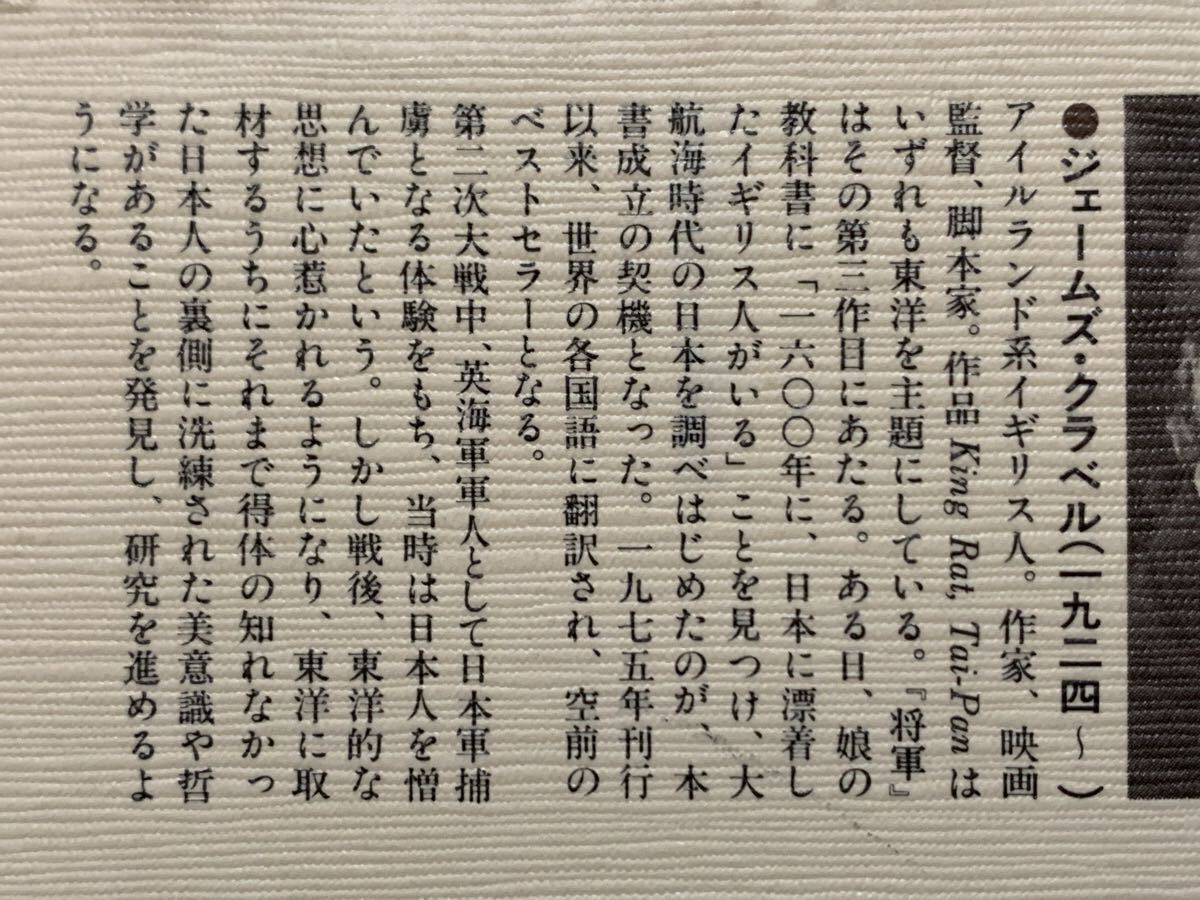 ●ジェームズ・クラベル（一九二四～　）
アイルランド系イギリス人。作家、映画
監督、脚本家。作品 King Rat, Tai-Pan は
いずれも東洋を主題にしている。『将軍』
はその第三作目にあたる。ある日、娘の
教科書に「一六〇〇年に、日本に漂着し
たイギリス人がいる」ことを見つけ、大
航海時代の日本を調べはじめたのが、本
書成立の契機となった。一九七五年刊行
以来、世界の各国語に翻訳され、空前の
ベストセラーとなる。
第二次大戦中、英海軍軍人として日本軍捕
虜となる体験をもち、当時は日本人を憎
んでいたという。しかし戦後、東洋的な
思想に心惹かれるようになり、東洋に取
材するうちにそれまで得体の知れなかっ
た日本人の裏側に洗練された美意識や哲
学があることを発見し、研究を進めるよ
うになる。